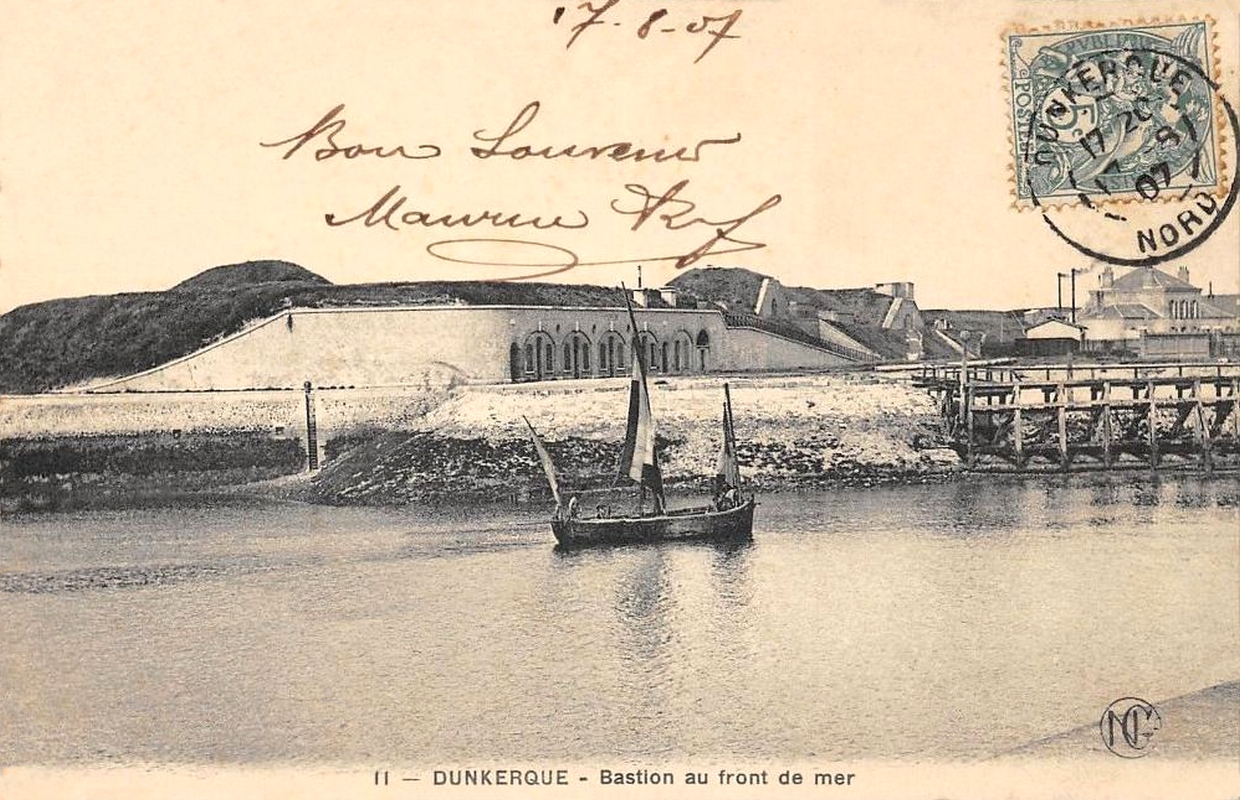 17-8-07
Bon Souvenir
Maurice
RÉPUBLIQUE
POSTES
5c
DUNKERQUE
17 20
17 - 8
07
NORD
11 — DUNKERQUE - Bastion au front de mer